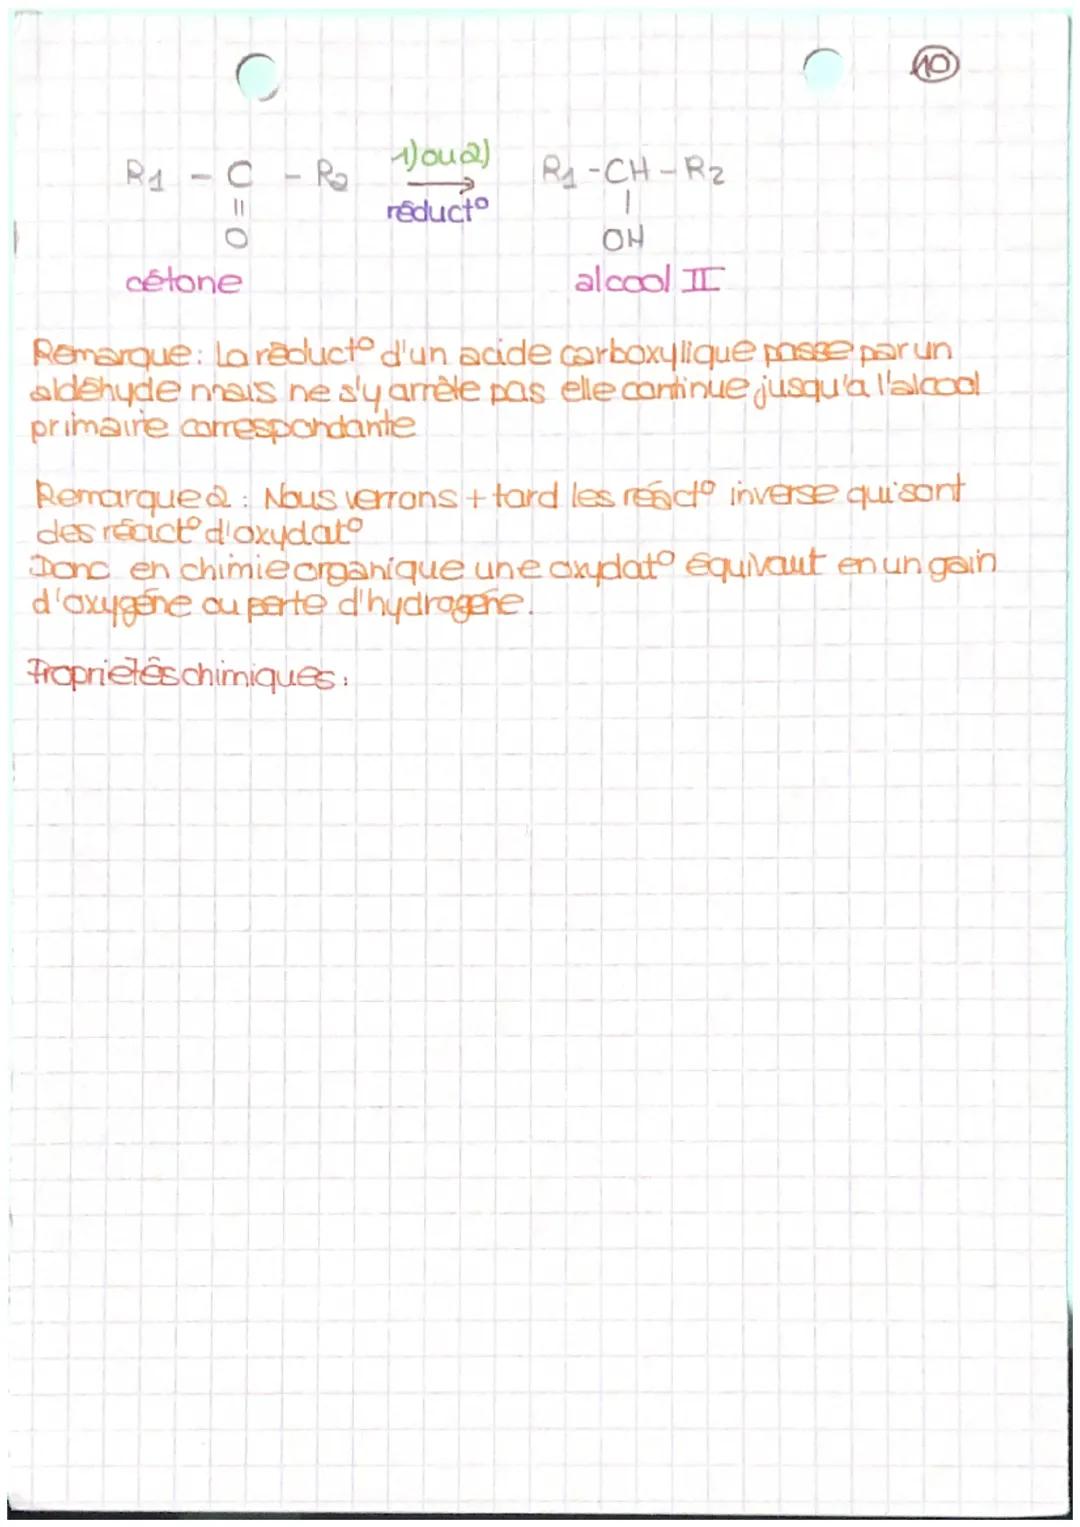 10
R1 - C - R2 1) ou 2) R1 - CH - R2
|| réduct° |
O OH
cétone alcool II
Remarque: La réduct° d'un acide carboxylique passe par un
aldéhyde mais ne s'y arrête pas elle continue jusqu'à l'alcool
primaire correspondante
Remarque 2 : Nous verrons + tard les réact° inverse qui sont
des réact° d'oxydat°
Donc en chimie organique une oxydat° équivaut en un gain
d'oxygène ou perte d'hydrogène.
Propriétés chimiques :